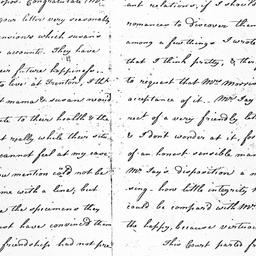 your letter very seasonably
ensions which susan's
s account. They have
eir future happiness.
to live at Trenton, I that
t mama & susan would
ute to their health & the
t really while their situ
cannot feel at my ease
ow mention could not be
me with a line, but
e the specimens they
ust have convinced them
friendship had not pre
ant relations, if I shoul
romances to discover than
among a few things I wrote
that I think pretty, & tho
to request that Mrs Morris
acceptance of it. Mr Jay
rect of a very friendly le
& I dont wonder at it, for
of an honest sensible man
Mr Jay's disposition a m
sing - how little integrity
could be compar'd with Mr
the happy, because virtuous
This Court parted f